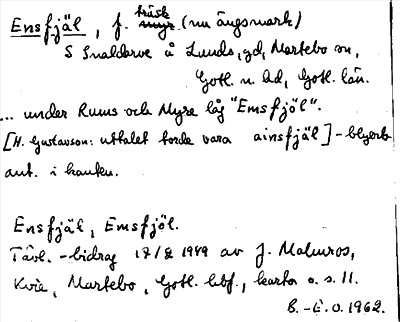 Ensfjäl, f. träsk myr (nu ängsmark)
S Snaldarve å Lunds, gd, Martebo sn,
Gotl. n. hd, Gotl. län.
... under Rums och Myre låg "Emsfjöl".
[H. Gustavson: uttalet torde vara ainsfjäl] - blyerts
ant. i kanten.
Ensfjäl, Emsfjöl.
Tävl.-bidrag 17/2 1949 av J. Malmros,
Kvie, Martebo, Gotl. hbf., kartor o. s. 11.
B.-E. O. 1962.